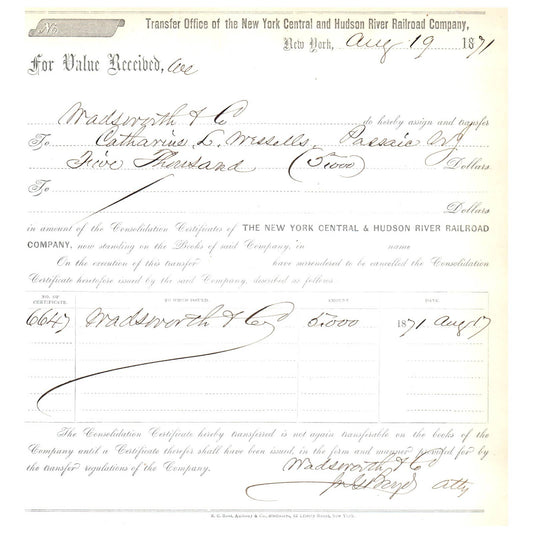 No
Transfer Office of the New York Central and Hudson River Railroad Company,
New York, Aug 19 1871
For Value Received, we
Wadsworth & Co do hereby assign and transfer
To Catharine L. Wessells, Passaic NJ
Five Thousand (5.000) Dollars
To
Dollars
in amount of the Consolidation Certificates of THE NEW YORK CENTRAL & HUDSON RIVER RAILROAD
COMPANY, now standing on the Books of said Company, in name
On the execution of this transfer have surrendered to be cancelled the Consolidation
Certificate heretofore issued by the said Company, described as follows
NO. OF CERTIFICATE. TO WHOM ISSUED. AMOUNT DATE
6647 Wadsworth & Co 5.000 1871 Aug 17
The Consolidation Certificate hereby transferred is not again transferable on the books of the
Company until a Certificate therefor shall have been issued, in the form and manner provided for by
the transfer regulations of the Company.
Wadsworth & Co
Boyd Atty
New York.